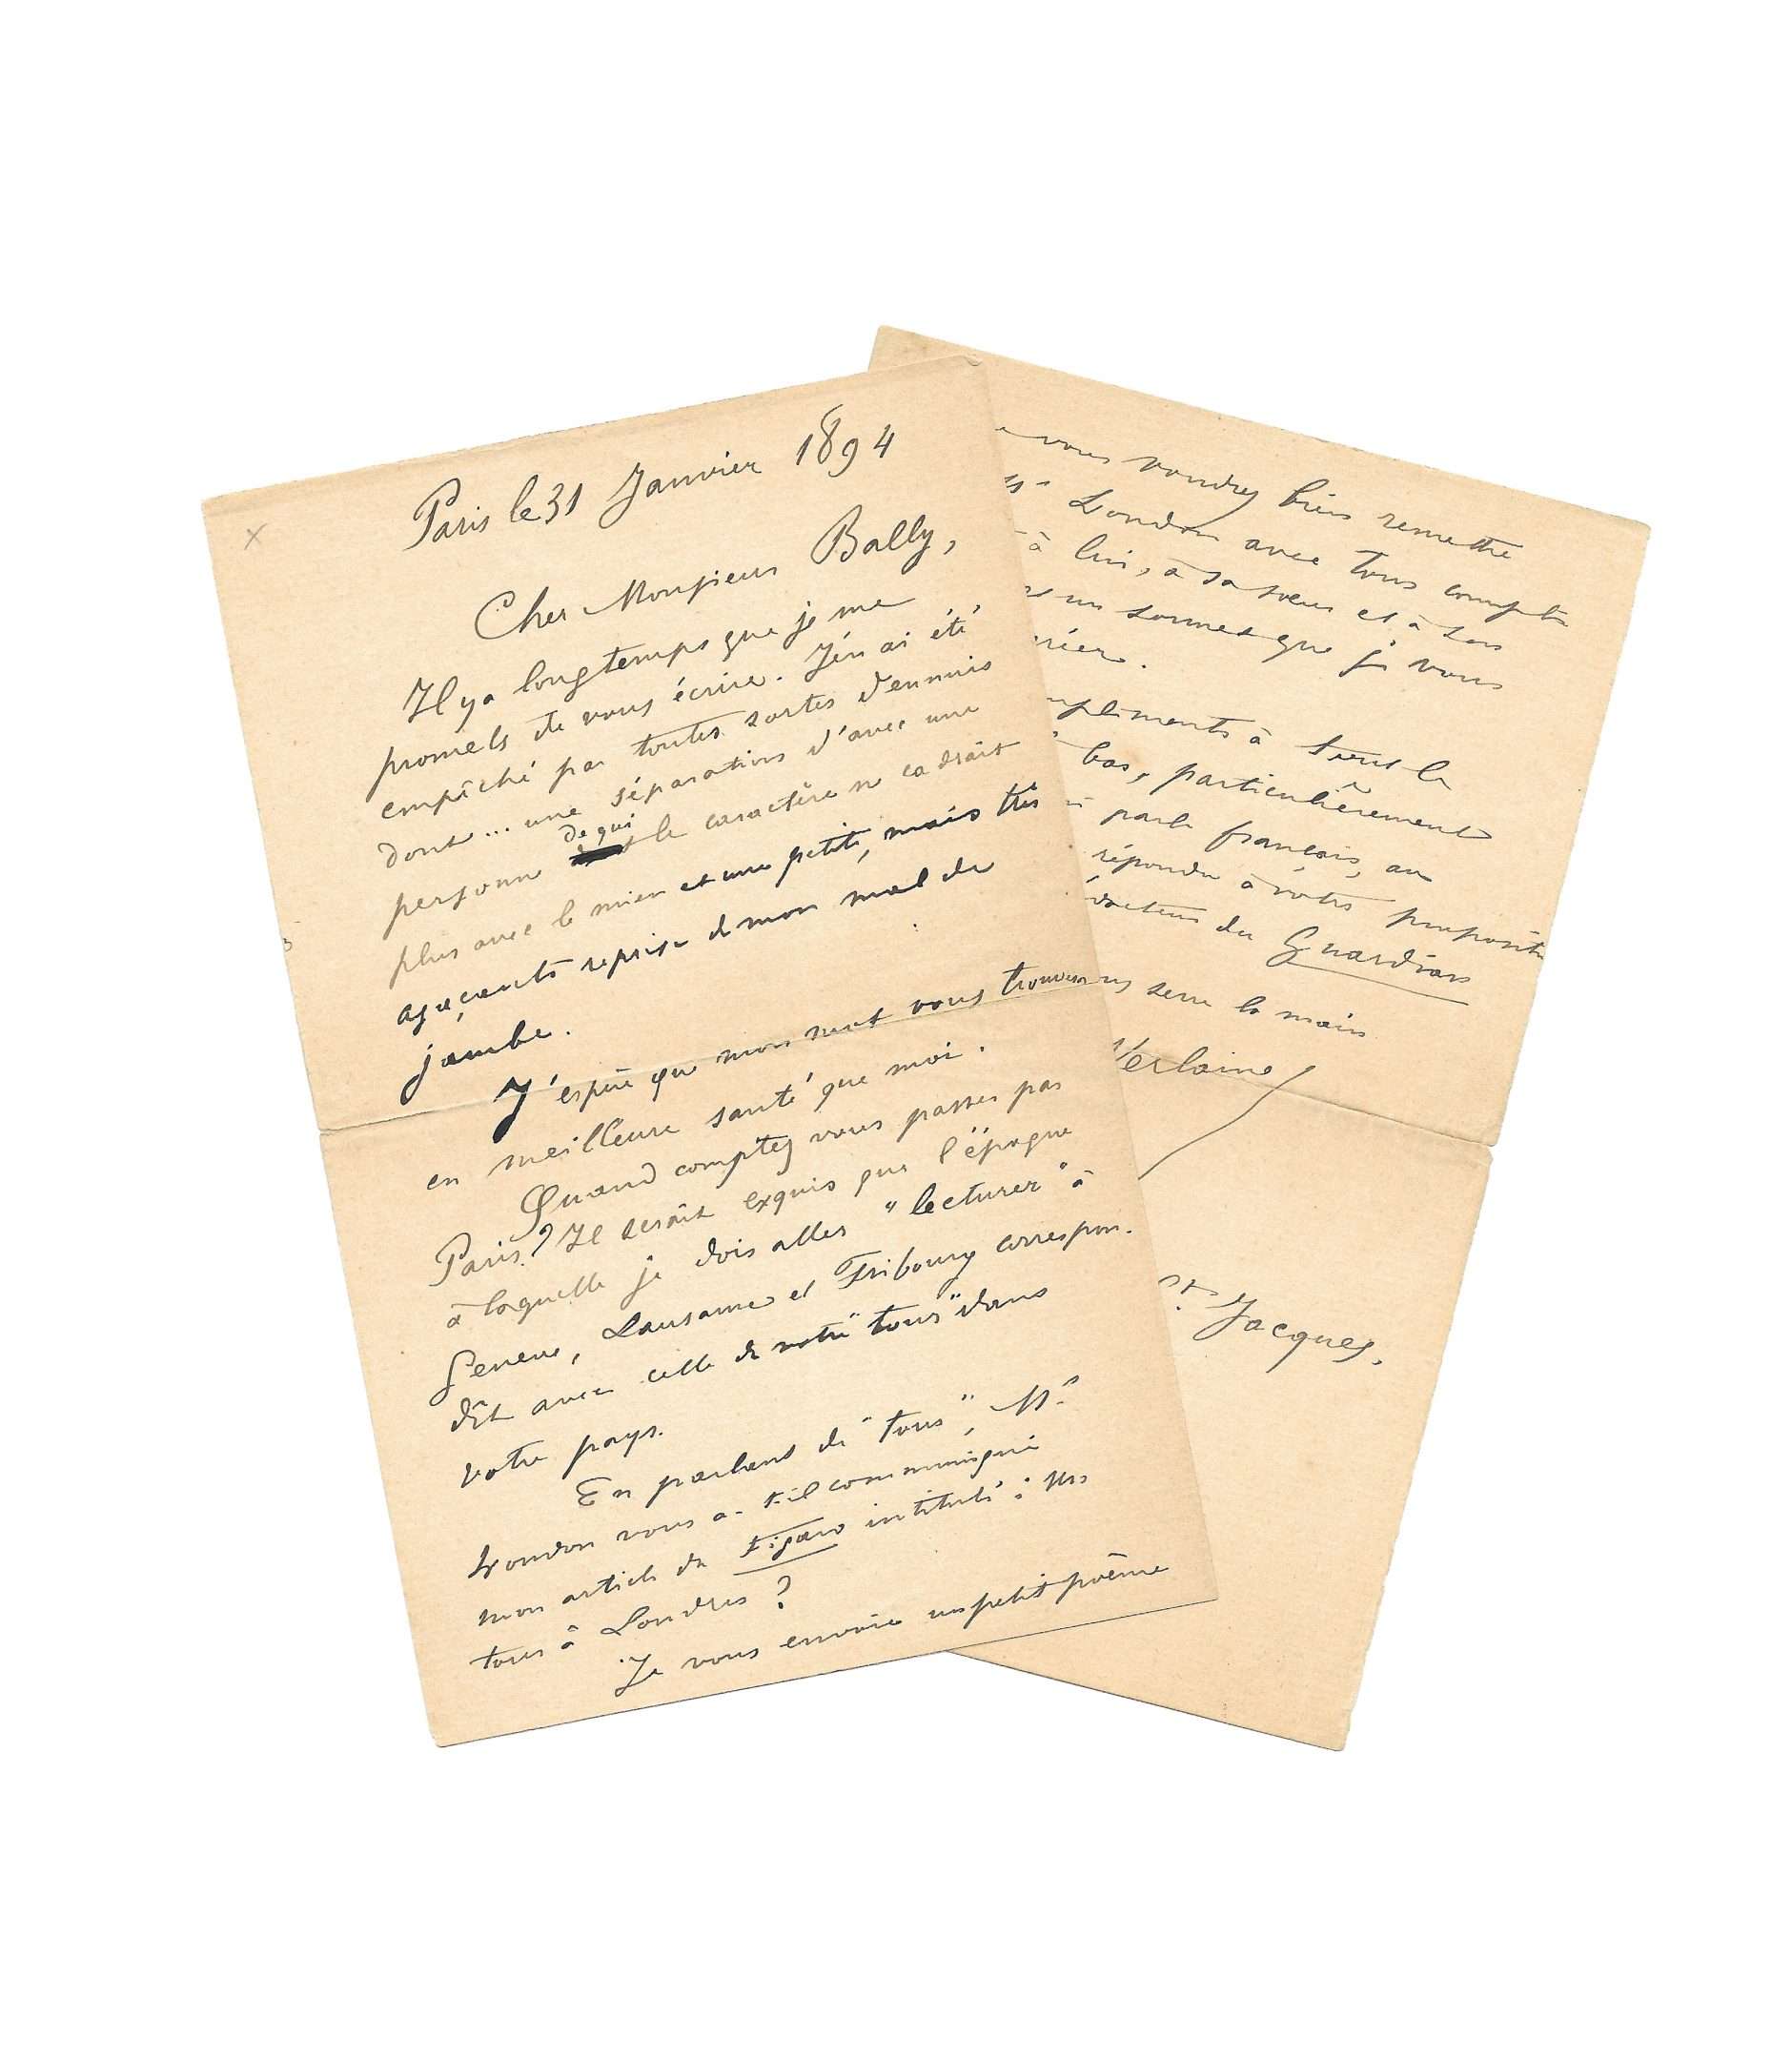 Paris le 31 Janvier 1894
Cher Monsieur Bally,
Il y a longtemps que je me
promets de vous écrire. J'en ai été
empêché par toutes sortes d'ennuis
dont ... une séparation d'avec une
de qui
personne le caractère ne cadrait
plus avec le mien et une petite, mais très
agaçante reprise de mon mal de
jambe.
J'espère que mon mot vous trouvera
en meilleure santé que moi.
Quand comptez vous passer par
Paris? Il serait exquis que l'époque
à laquelle je dois aller "lecturer" à
Geneve, Lausanne et Fribourg correspon-
dît avec celle de votre "tour" dans
votre pays.
En parlant de "tour", Mr
London vous a-t-il communiqué
mon article du Figaro intitulé: Un
tour à Londres?
Je vous envoie un petit poème
vous voudrez bien remettre
Mr London avec tous compli
à lui, à sa soeur et à son
un sonnet que je vous
pliments à tout le
bas, particulièrement
parle français, au
répondu à votre propositi
du Guardian
serre la main
Verlaine
St Jacques,